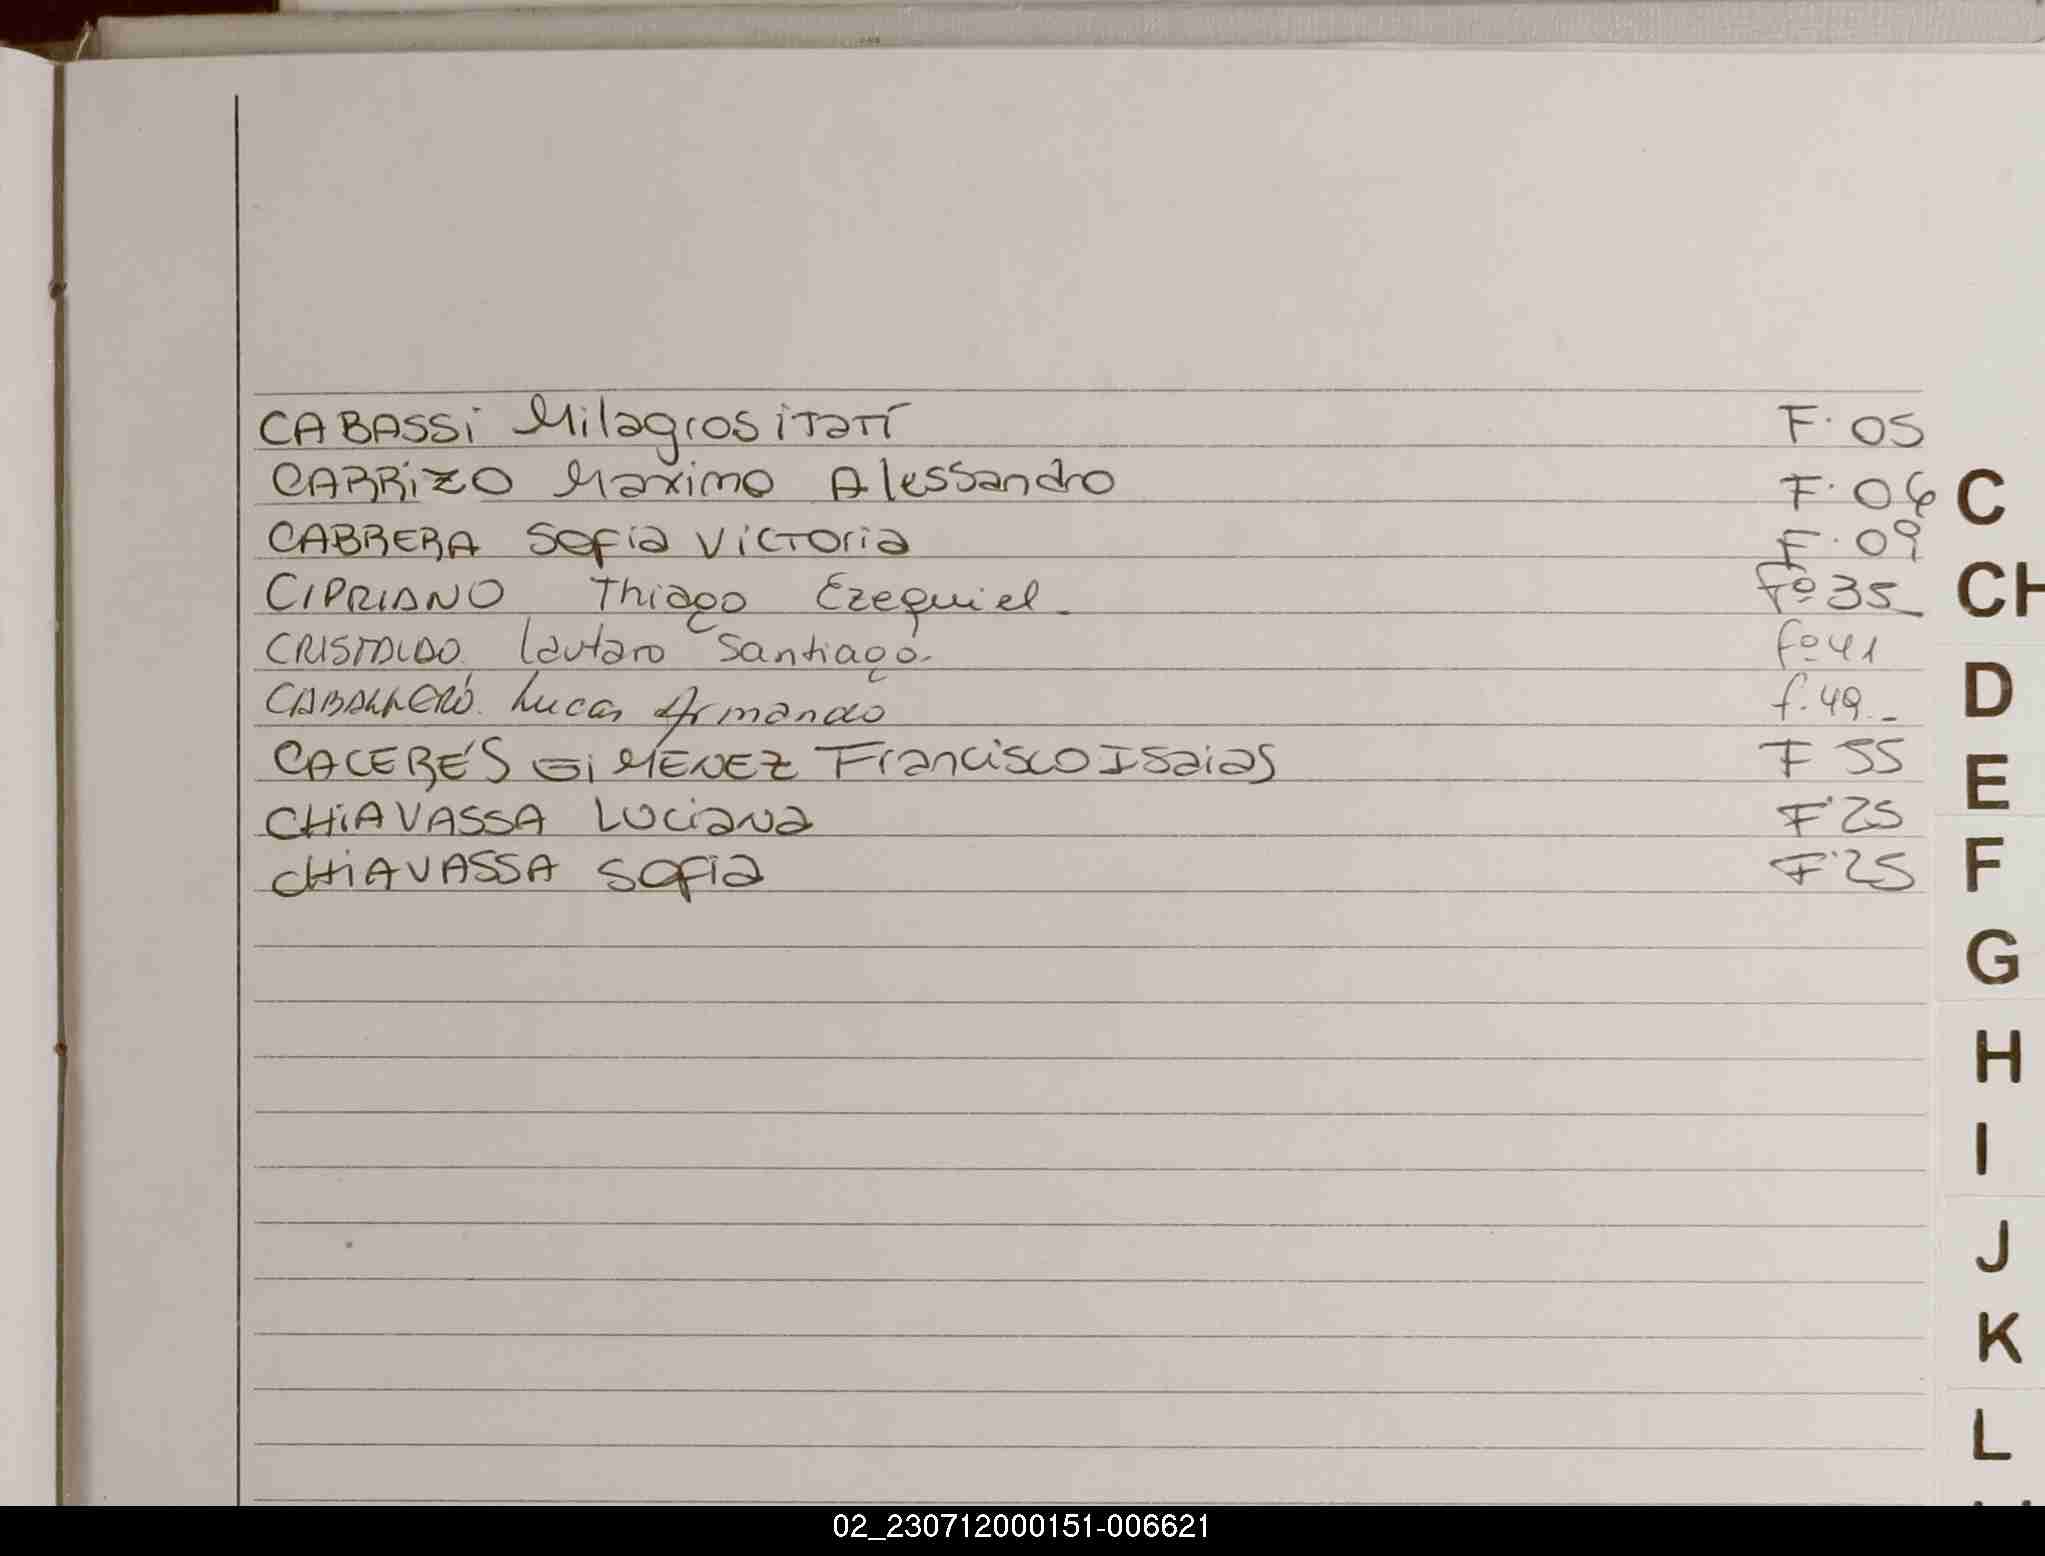 CABASSi Milagros iTaTí F. 05
CARRiZO Maximo Alessandro F. 06
CABRERA Sofia VicToria F. 09
CIPRIANO Thiago Ezequiel. Fº 35
CRISTALDO. Lautaro Santiago. fº 41
CABALLERO. Lucas Armando f. 49.-
CACERES GiMENEZ Francisco Isaias F 55
CHiAVASSA Luciana F 25
CHiAVASSA Sofia F 25
C
CH
D
E
F
G
H
I
J
K
L
02_230712000151-006621